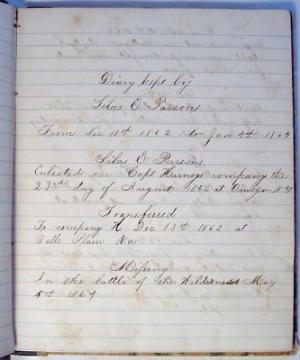 Diary kept by
Silas E Parson
From Dec 10th 1862 to Jan 5th
Silas E Parsons
Enlisted in Capt Harneys company the
23rd day of August 1862 at N.Y
Transferred
To company H Dec 13th 1862 at
Belle Plain Va
Missing
In the battle of the Wilderness May
5th 1864